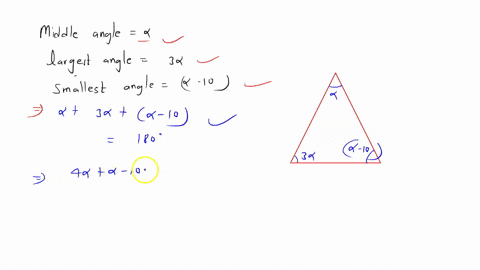 Middle angle = α
largest angle = 3α
Smallest angle = (α-10)
⇒ α + 3α + (α-10)
= 180°
⇒ 4α + α - 10°
α
3α
(α-10)